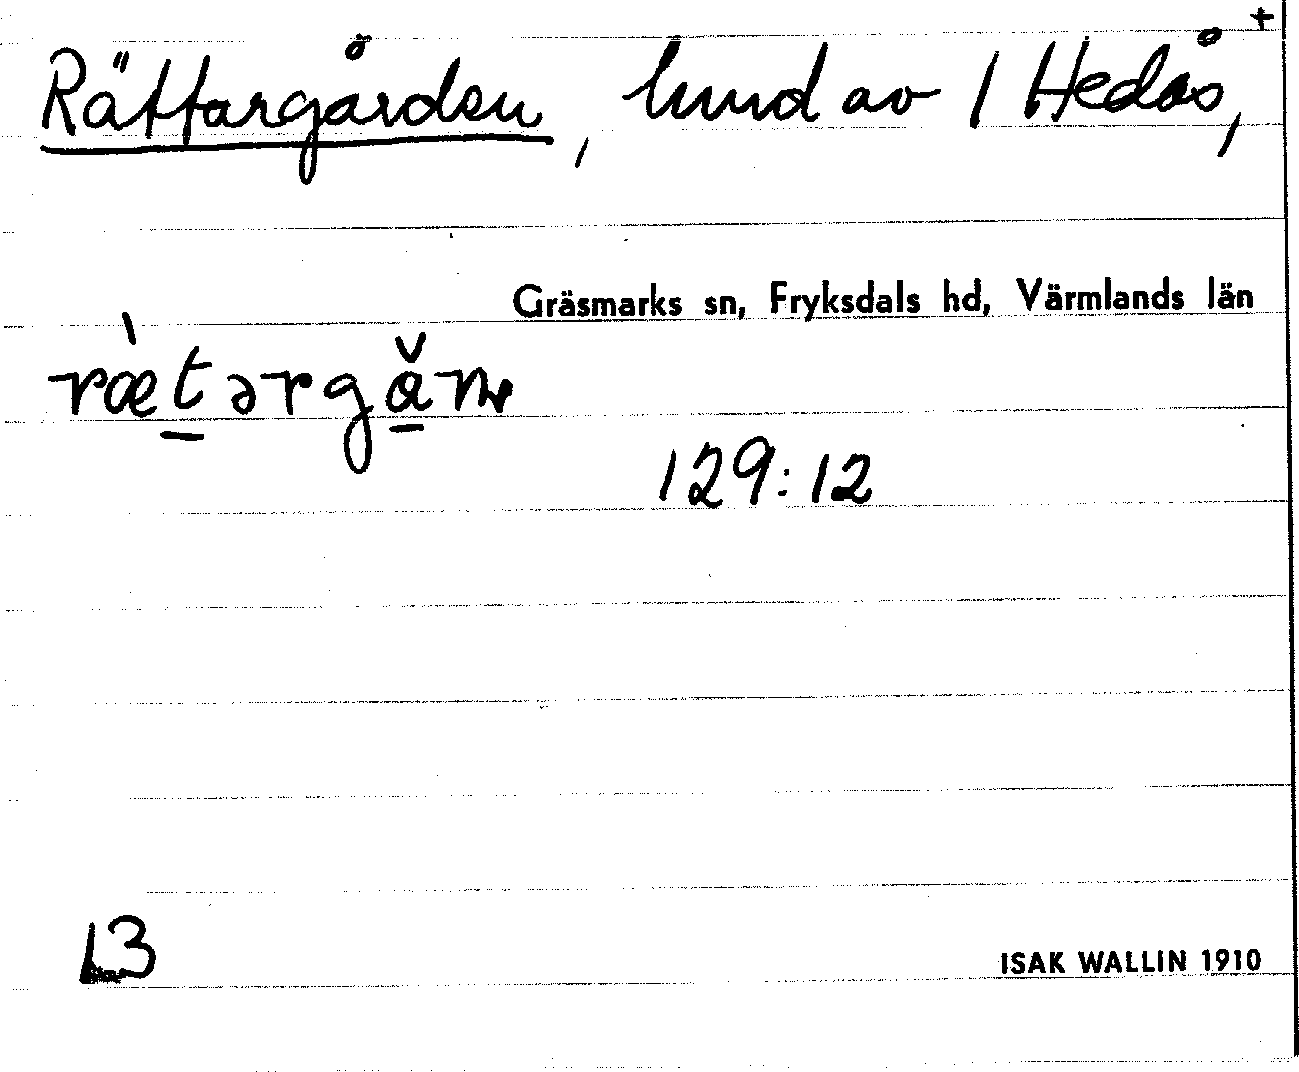 +
Rättargården, hmd av 1 Hedås,
Gräsmarks sn, Fryksdals hd, Värmlands län
ræ̀tərgǎn
129:12
13
ISAK WALLIN 1910